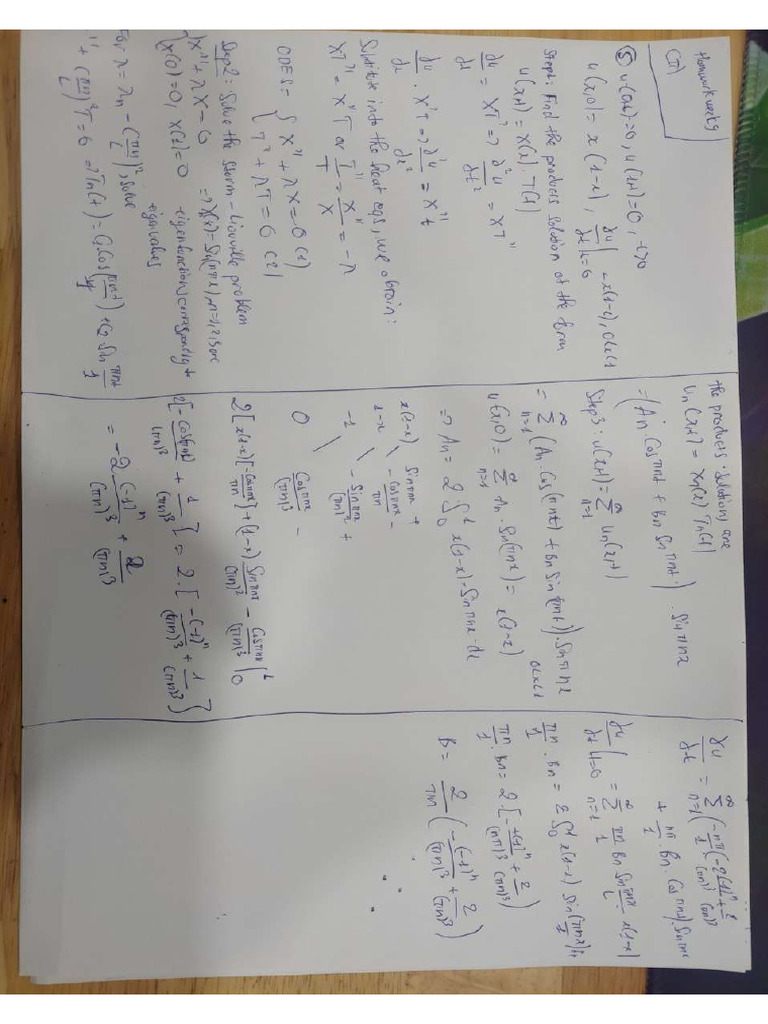 Homework week 9
(II)
⑤ u(0,t)=0, u(1,t)=0, t>0
u(x,0) = x(1-x), ∂u/∂t|t=0 = x(1-x), 0<x<1
Step1: Find the products solution of the form
u(x,t) = X(x).T(t)
∂u/∂t = XT' => ∂²u/∂t² = XT''
∂u/∂x = X'T => ∂²u/∂x² = X''t
Substitute into the heat eqs, we obtain:
XT'' = X''T or T''/T = X''/X = -λ
ODES = { X'' + λX = 0 (1)
T'' + λT = 0 (2)
Step2: Solve the sturm-Liouville problem
{ X'' + λX = 0 => X(x) = Sin(nπx), n=1,2,3
X(0)=0, X(1)=0 - eigenfunctions corresponding to
eigenvalues
For λ = λn = (πn/L)², solve
T'' + (πn/L)² T = 0 => Tn(t) = C1.Cos(πnt/1) + C2 Sin πnt/1
the products solutions are
un(x,t) = Xn(x) Tn(t)
= (An Cosπnt + Bn Sinπnt) . Sinπnx
Step3: u(x,t) = ∑ n=1 ∞ un(x,t)
= ∑ n=1 ∞ (An.Cos(πnt) + Bn Sin(πnt)).Sinπnx
0<x<1
u(x,0) = ∑ n=1 ∞ An.Sin(πnx) = x(1-x)
=> An = 2 ∫0 1 x(1-x).Sinπnx.dx
x(1-x) Sinπnx +
1-x -Cosπnx/πn -
-1 -Sinπnx/(πn)² +
0 Cosπnx/(πn)³ -
2[x(1-x)[-Cosπnx/πn] + (1-x) Sinπnx/(πn)² - Cosπnx/(πn)³ |0 1
2[-Cosπn/(πn)³ + 1/(πn)³] = 2.[-(-1)^n/(πn)³ + 1/(πn)³]
= -2 (-1)^n/(πn)³ + 2/(πn)³
∂u/∂t = ∑ n=1 ∞ (-nπ/1 (-2(-1)^n/(πn)³ + 2/(πn)³
+ πn/1 . Bn.Cosπnt).Sinπnx
∂u/∂t|t=0 = ∑ n=1 ∞ πn/1 Bn Sin πnx/L = x(1-x)
πn/1 . Bn = 2 ∫0 1 x(1-x) Sin(πnx/1)
πn/1 . Bn = 2.[-(-1)^n/(πn)³ + 2/(πn)³)
B = 2/πn (-(-1)^n/(πn)³ + 2/(πn)³)